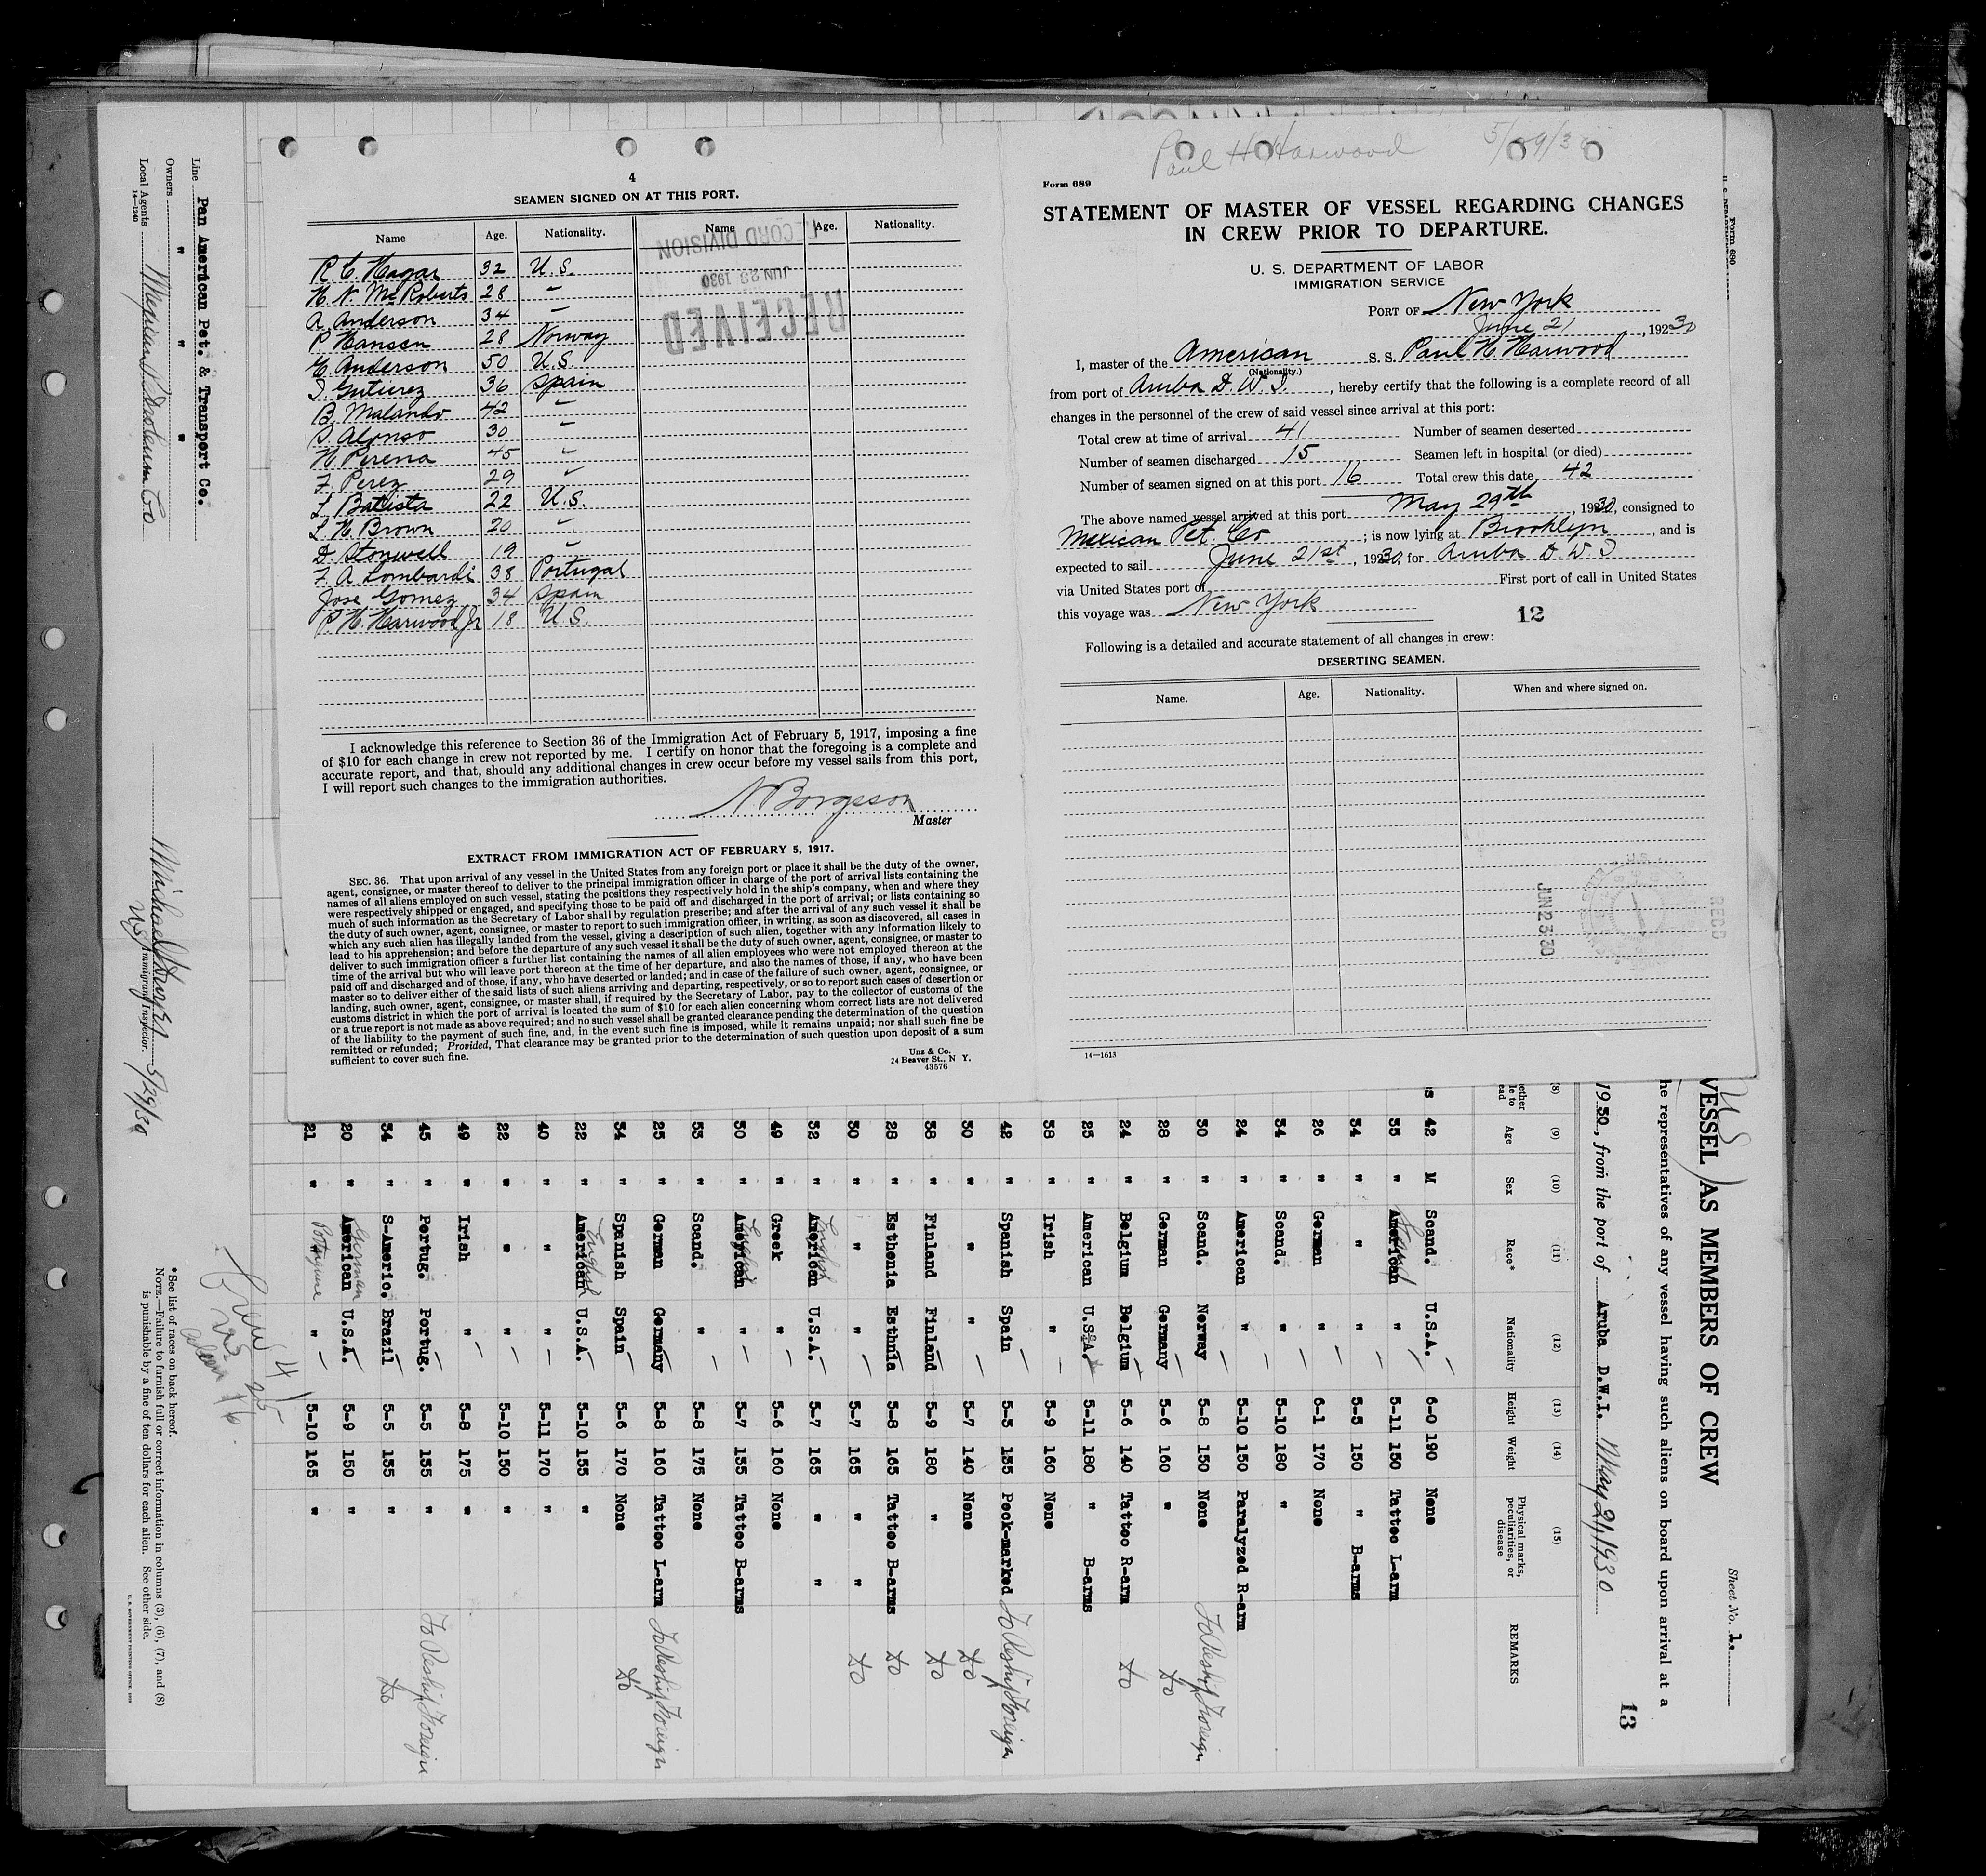 4
SEAMEN SIGNED ON AT THIS PORT.
Name Age. Nationality. Name Age. Nationality.
R. C. Hagar 32 U.S.
H. N. McRoberts 28 "
A. Anderson 34 "
P. Hansen 28 Norway
Anderson 50 U.S.
Gutierez 36 Spain
B. Malando 42 "
Alonso 30 "
Perena 45 "
F. Perez 29 "
Batista 22 U.S.
L. H. Brown 20 "
D. Stonwell 19 "
F. A. Lombardi 38 Portugal
Jose Gomez 34 Spain
P. H. Harwood Jr 18 U.S.
RECORD DIVISION
JUN 23 1930
RECEIVED
I acknowledge this reference to Section 36 of the Immigration Act of February 5, 1917, imposing a fine
of $10 for each change in crew not reported by me. I certify on honor that the foregoing is a complete and
accurate report, and that, should any additional changes in crew occur before my vessel sails from this port,
I will report such changes to the immigration authorities.
N. Borgsson
Master
EXTRACT FROM IMMIGRATION ACT OF FEBRUARY 5, 1917.
SEC. 36. That upon arrival of any vessel in the United States from any foreign port or place it shall be the duty of the owner,
agent, consignee, or master thereof to deliver to the principal immigration officer in charge of the port of arrival lists containing the
names of all aliens employed on such vessel, stating the positions they respectively hold in the ship's company, when and where they
were respectively shipped or engaged, and specifying those to be paid off and discharged in the port of arrival; or lists containing so
much of such information as the Secretary of Labor shall by regulation prescribe; and after the arrival of any such vessel it shall be
the duty of such owner, agent, consignee, or master to report to such immigration officer, in writing, as soon as discovered, all cases in
which any such alien has illegally landed from the vessel, giving a description of such alien, together with any information likely to
lead to his apprehension; and before the departure of any such vessel it shall be the duty of such owner, agent, consignee, or master to
deliver to such immigration officer a further list containing the names of all alien employees who were not employed thereon at the
time of the arrival but who will leave port thereon at the time of her departure, and also the names of those, if any, who have been
paid off and discharged and of those, if any, who have deserted or landed; and in case of the failure of such owner, agent, consignee, or
master so to deliver either of the said lists of such aliens arriving and departing, respectively, or so to report such cases of desertion or
landing, such owner, agent, consignee, or master shall, if required by the Secretary of Labor, pay to the collector of customs of the
customs district in which the port of arrival is located the sum of $10 for each alien concerning whom correct lists are not delivered
or a true report is not made as above required; and no such vessel shall be granted clearance pending the determination of the question
of the liability to the payment of such fine, and, in the event such fine is imposed, while it remains unpaid; nor shall such fine be
remitted or refunded; Provided, That clearance may be granted prior to the determination of such question upon deposit of a sum
sufficient to cover such fine.
Unz & Co.
24 Beaver St., N Y.
43576
Paul H Harwood 5/29/30
Form 689
STATEMENT OF MASTER OF VESSEL REGARDING CHANGES
IN CREW PRIOR TO DEPARTURE.
U. S. DEPARTMENT OF LABOR
IMMIGRATION SERVICE
PORT OF New York
June 21, 1930
I, master of the American S. S. Paul H. Harwood
(Nationality.)
from port of Aruba D. W. I., hereby certify that the following is a complete record of all
changes in the personnel of the crew of said vessel since arrival at this port:
Total crew at time of arrival 41 Number of seamen deserted
Number of seamen discharged 15 Seamen left in hospital (or died)
Number of seamen signed on at this port 16 Total crew this date 42
The above named vessel arrived at this port May 29th, 1930, consigned to
Mexican Pet. Co ; is now lying at Brooklyn, and is
expected to sail June 21st, 1930, for Aruba D W I
via United States port of First port of call in United States
this voyage was New York
12
Following is a detailed and accurate statement of all changes in crew:
DESERTING SEAMEN.
Name. Age. Nationality. When and where signed on.
JUN 23 30
RECD
14—1613
Form 680
Sheet No. 1.
13
VESSEL AS MEMBERS OF CREW
he representatives of any vessel having such aliens on board upon arrival at a
1930, from the port of Aruba D.W.I. May 21, 1930
(8) (9) (10) (11) (12) (13) (14) (15)
Age Sex Race* Nationality Height Weight Physical marks, peculiarities, or disease REMARKS
42 M Scand. U.S.A. 6-0 190 None
35 " American " 5-11 150 Tattoo L-arm
34 " " " 5-5 150 " B-arms
26 " German " 6-1 170 None
34 " Scand. " 5-10 180 "
24 " American " 5-10 150 Paralyzed R-arm
30 " Scand. Norway 5-8 150 None To Reship Foreign
28 " German Germany 5-6 160 " Do
24 " Belgium Belgium 5-6 140 Tattoo R-arm Do
25 " American U.S.A. 5-11 180 " B-arms
38 " Irish " 5-9 160 None
42 " Spanish Spain 5-5 135 Pock-marked To Reship Foreign
30 " " " 5-7 140 None Do
38 " Finland Finland 5-9 180 " Do
28 " Esthenia Esthnia 5-8 165 Tattoo B-arms Do
30 " " " 5-7 165 " " Do
32 " American English U.S.A. 5-7 165 " "
49 " Greek " 5-6 160 None
30 " American English " 5-7 135 Tattoo B-arms
53 " Scand. " 5-8 175 None
25 " German Germany 5-8 160 Tattoo L-arm To Reship Foreign
34 " Spanish Spain 5-6 170 None Do
22 " American English U.S.A. 5-10 155 "
40 " " " 5-11 170 "
22 " " " 5-10 150 "
49 " Irish " 5-8 175 "
45 " Portug. Portug. 5-5 135 " To Reship Foreign
34 " S-Americ. Brazil 5-5 135 " Do
20 " American German U.S.A. 5-9 150 "
21 " " Portuguese " 5-10 165 "
Crew 41
US 25
alien 16
*See list of races on back hereof.
NOTE.—Failure to furnish full or correct information in columns (3), (6), (7), and (8)
is punishable by a fine of ten dollars for each alien. See other side.
U. S. GOVERNMENT PRINTING OFFICE: 1929
Line Pan American Pet. & Transport Co.
Owners " " "
Local Agents Mexican Petroleum Co
14—1240
US Immigrant Inspector. 5/29/30